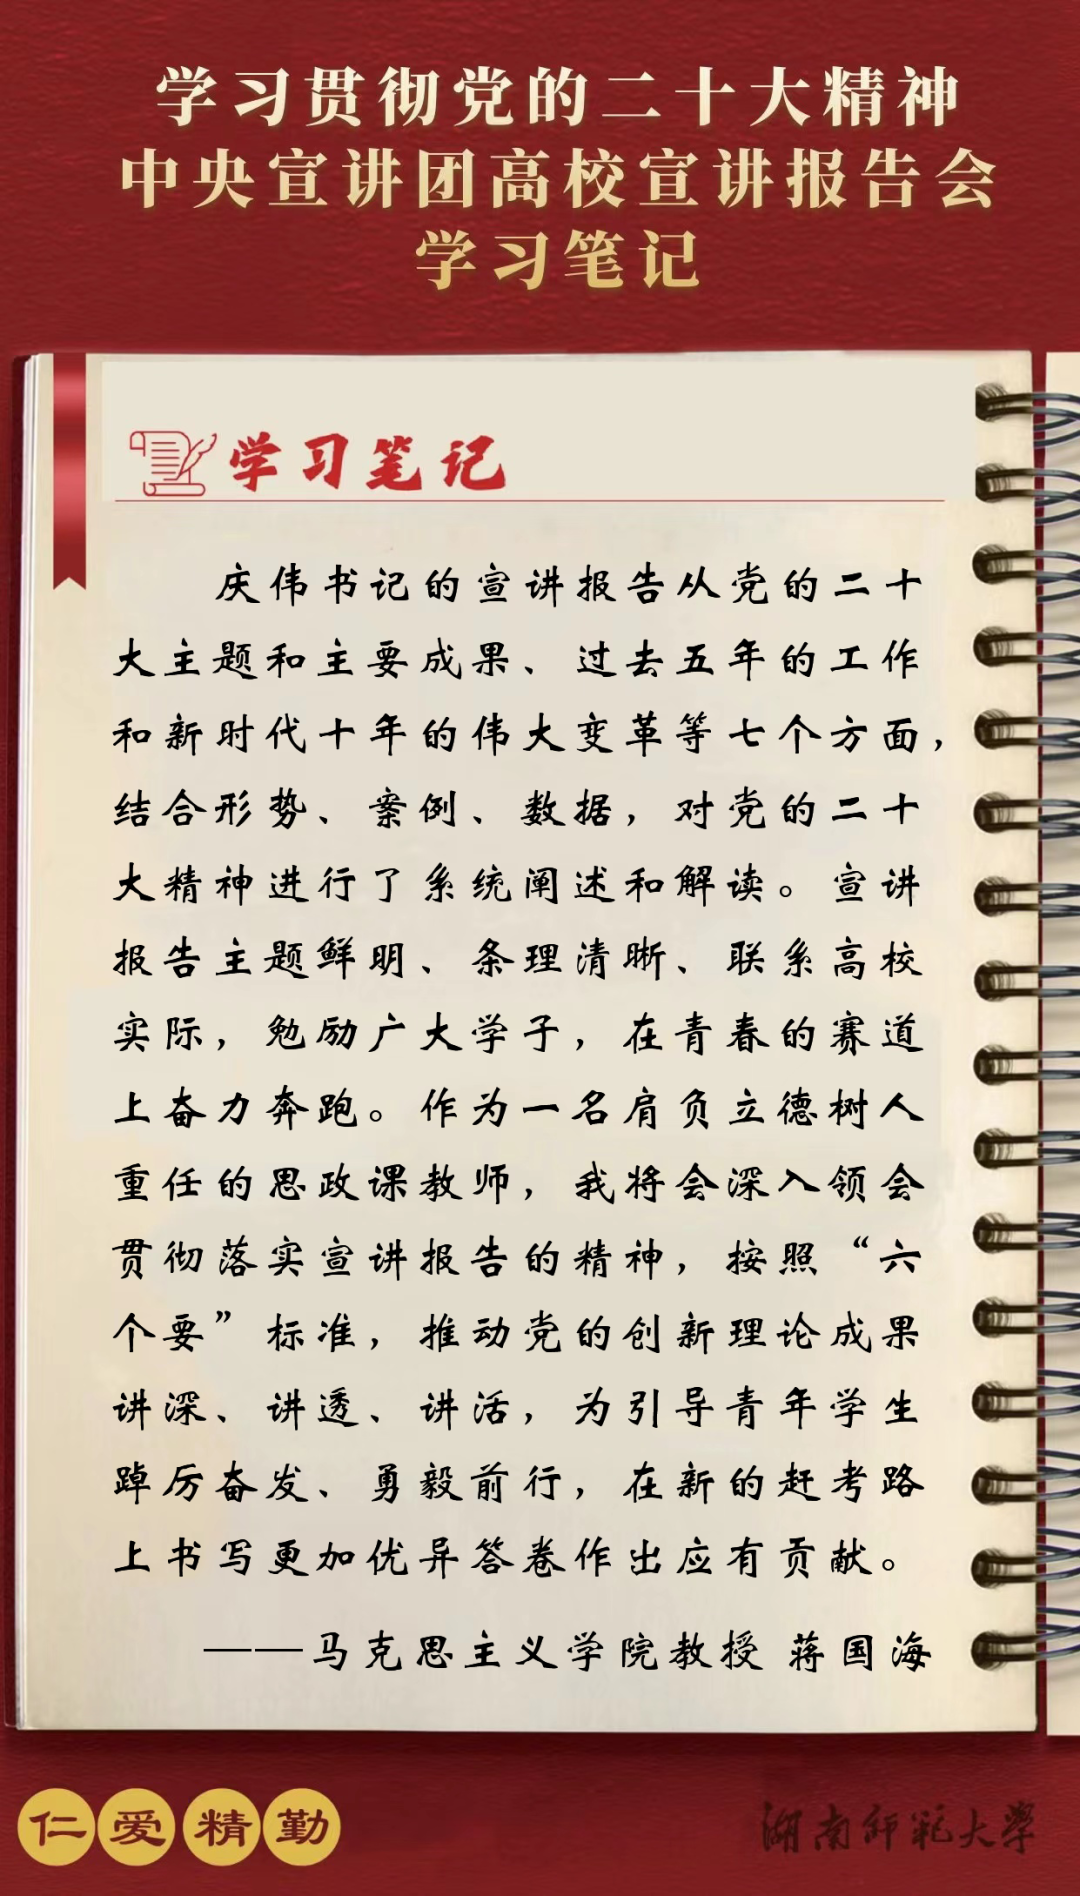 学习贯彻党的二十大精神
中央宣讲团高校宣讲报告会
学习笔记
学习笔记
庆伟书记的宣讲报告从党的二十
大主题和主要成果、过去五年的工作
和新时代十年的伟大变革等七个方面，
结合形势、案例、数据，对党的二十
大精神进行了系统阐述和解读。宣讲
报告主题鲜明、条理清晰、联系高校
实际，勉励广大学子，在青春的赛道
上奋力奔跑。作为一名肩负立德树人
重任的思政课教师，我将会深入领会
贯彻落实宣讲报告的精神，按照“六
个要”标准，推动党的创新理论成果
讲深、讲透、讲活，为引导青年学生
踔厉奋发、勇毅前行，在新的赶考路
上书写更加优异答卷作出应有贡献。
——马克思主义学院教授 蒋国海
仁爱精勤
湖南师范大学